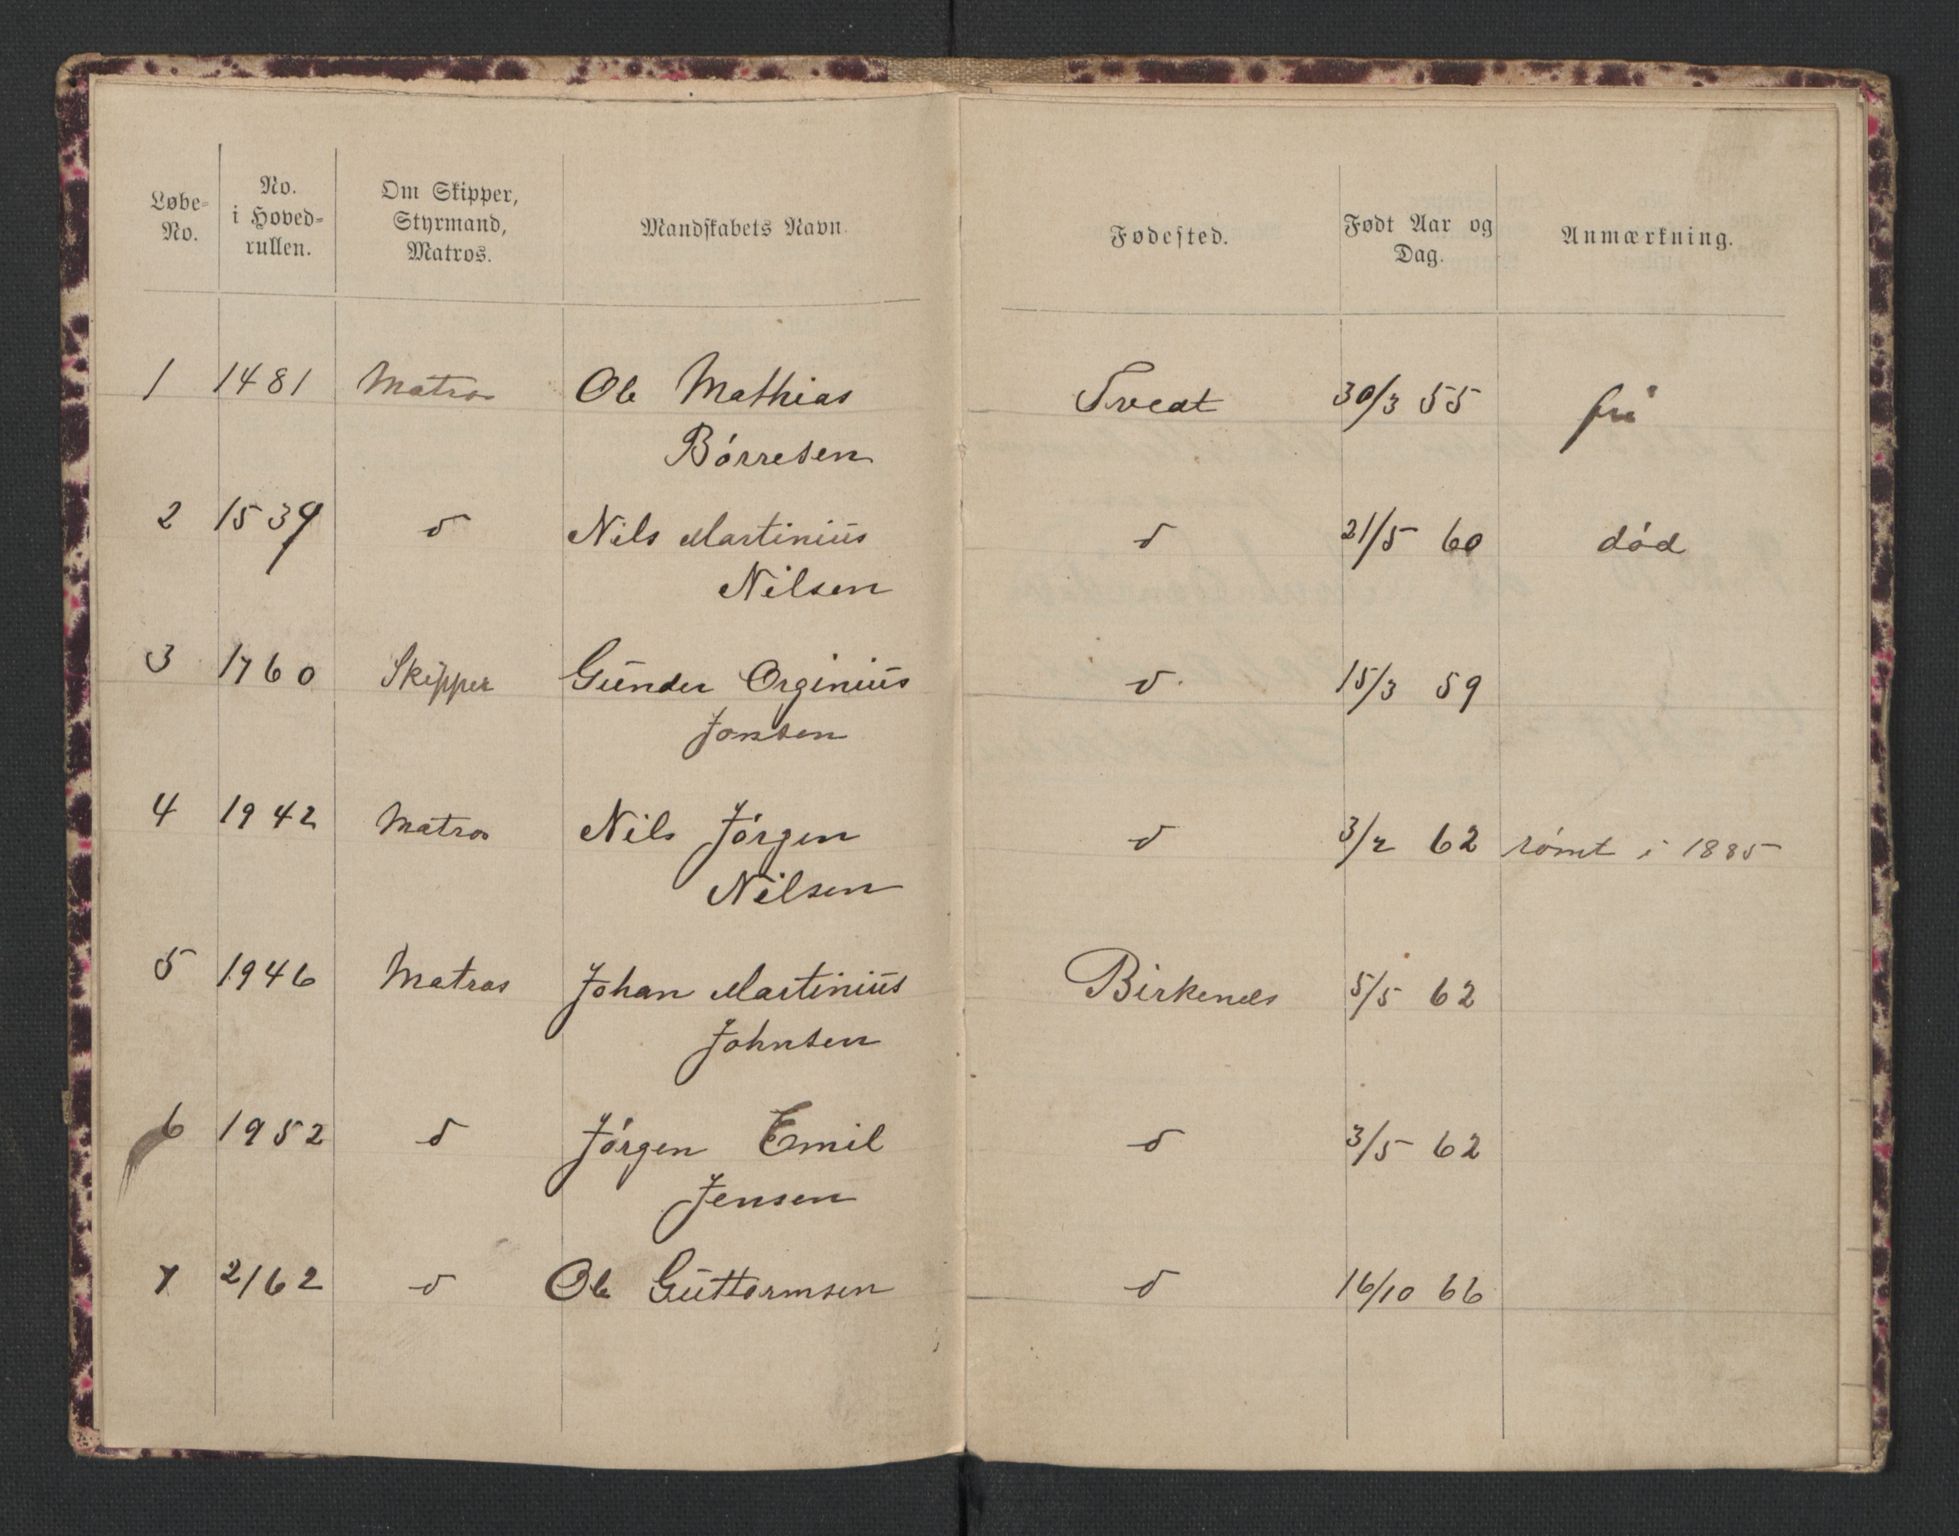 Løbe-No. | No. i Hoved-rullen. | Om Skipper, Styrmand, Matros. | Mandskabets Navn. | Fødested. | Født Aar og Dag. | Anmærkning.
1 | 1481 | Matros | Ole Mathias | Tveat | 30/3 55 | fri
Börresen
2 | 1539 | d | Nils Martinius | d | 21/5 60 | död
Nilsen
3 | 1760 | Skipper | Gunder Orginius | d | 15/3 59
Jonsen
4 | 1942 | Matros | Nils Jörgen | d | 3/2 62 | römt i 1885
Nilsen
5 | 1946 | Matros | Johan Martinius | Birkenes | 5/5 62
Johnsen
6 | 1952 | d | Jörgen Emil | d | 3/5 62
Jensen
7 | 2162 | d | Ole Guttormsen | d | 16/10 66